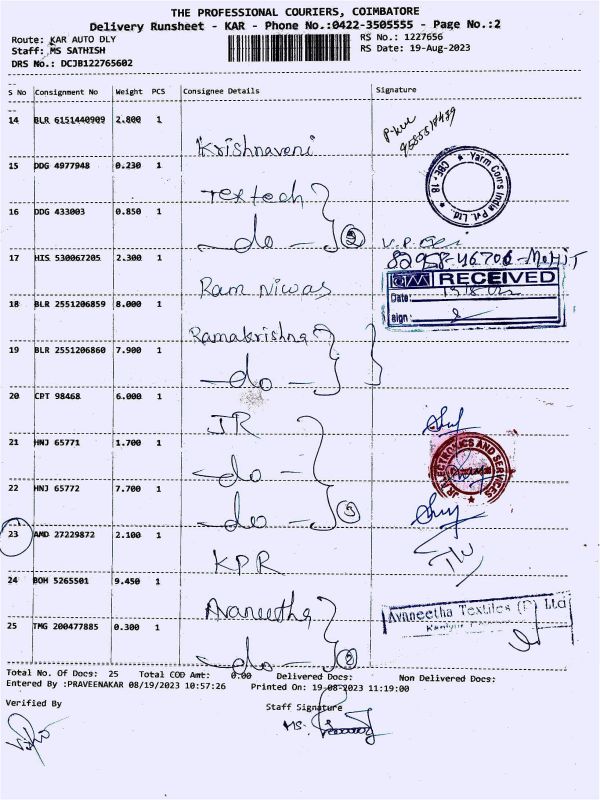 THE PROFESSIONAL COURIERS, COIMBATORE
Delivery Runsheet - KAR - Phone No.:0422-3505555 - Page No.:2
Route: KAR AUTO DLY
RS No.: 1227656
Staff: MS SATHISH
RS Date: 19-Aug-2023
DRS No.: DCJB122765602
S No Consignment No Weight PCS Consignee Details Signature
14 BLR 6151440909 2.800 1
9585518439
Krishnaveni
15 DDG 4977948 0.230 1
Textech
CBE - 18 ★ Yarm Coirs India Pvt. Ltd. ★
16 DDG 433003 0.850 1
do
17 HIS 530067205 2.300 1
82958-46706-MOHIT
Ram Niwas
RECEIVED
Date:
sign:
18 BLR 2551206859 8.000 1
Ramakrishna
19 BLR 2551206860 7.900 1
do
20 CPT 98468 6.000 1
JR
21 HNJ 65771 1.700 1
do
JR ELECTRONICS AND SERVICES
22 HNJ 65772 7.700 1
do 3
23 AMD 27229872 2.100 1
KPR
24 BOM 5265501 9.450 1
Avaneetha
Avaneetha Textiles (P) Ltd
25 TMG 200477885 0.300 1
do 2
Total No. Of Docs: 25 Total COD Amt: 0.00 Delivered Docs: Non Delivered Docs:
Entered By :PRAVEENAKAR 08/19/2023 10:57:26 Printed On: 19-08-2023 11:19:00
Verified By
Staff Signature
MS.